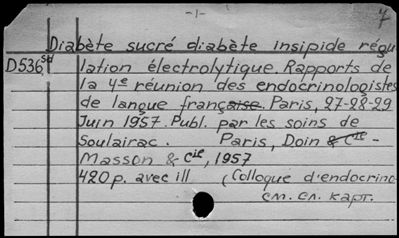 -1-
7
Diabète sucré diabète insipide régu
D536sd lation électrolytique. Rapports de
la 4e réunion des endocrinologistes
de langue française. Paris, 27-28-29
Juin 1957. Publ. par les soins de
Soulairac. Paris, Doin & Cie -
Masson & Cie, 1957
420 p. avec ill (Colloque d'endocrino
см. сл. карт.